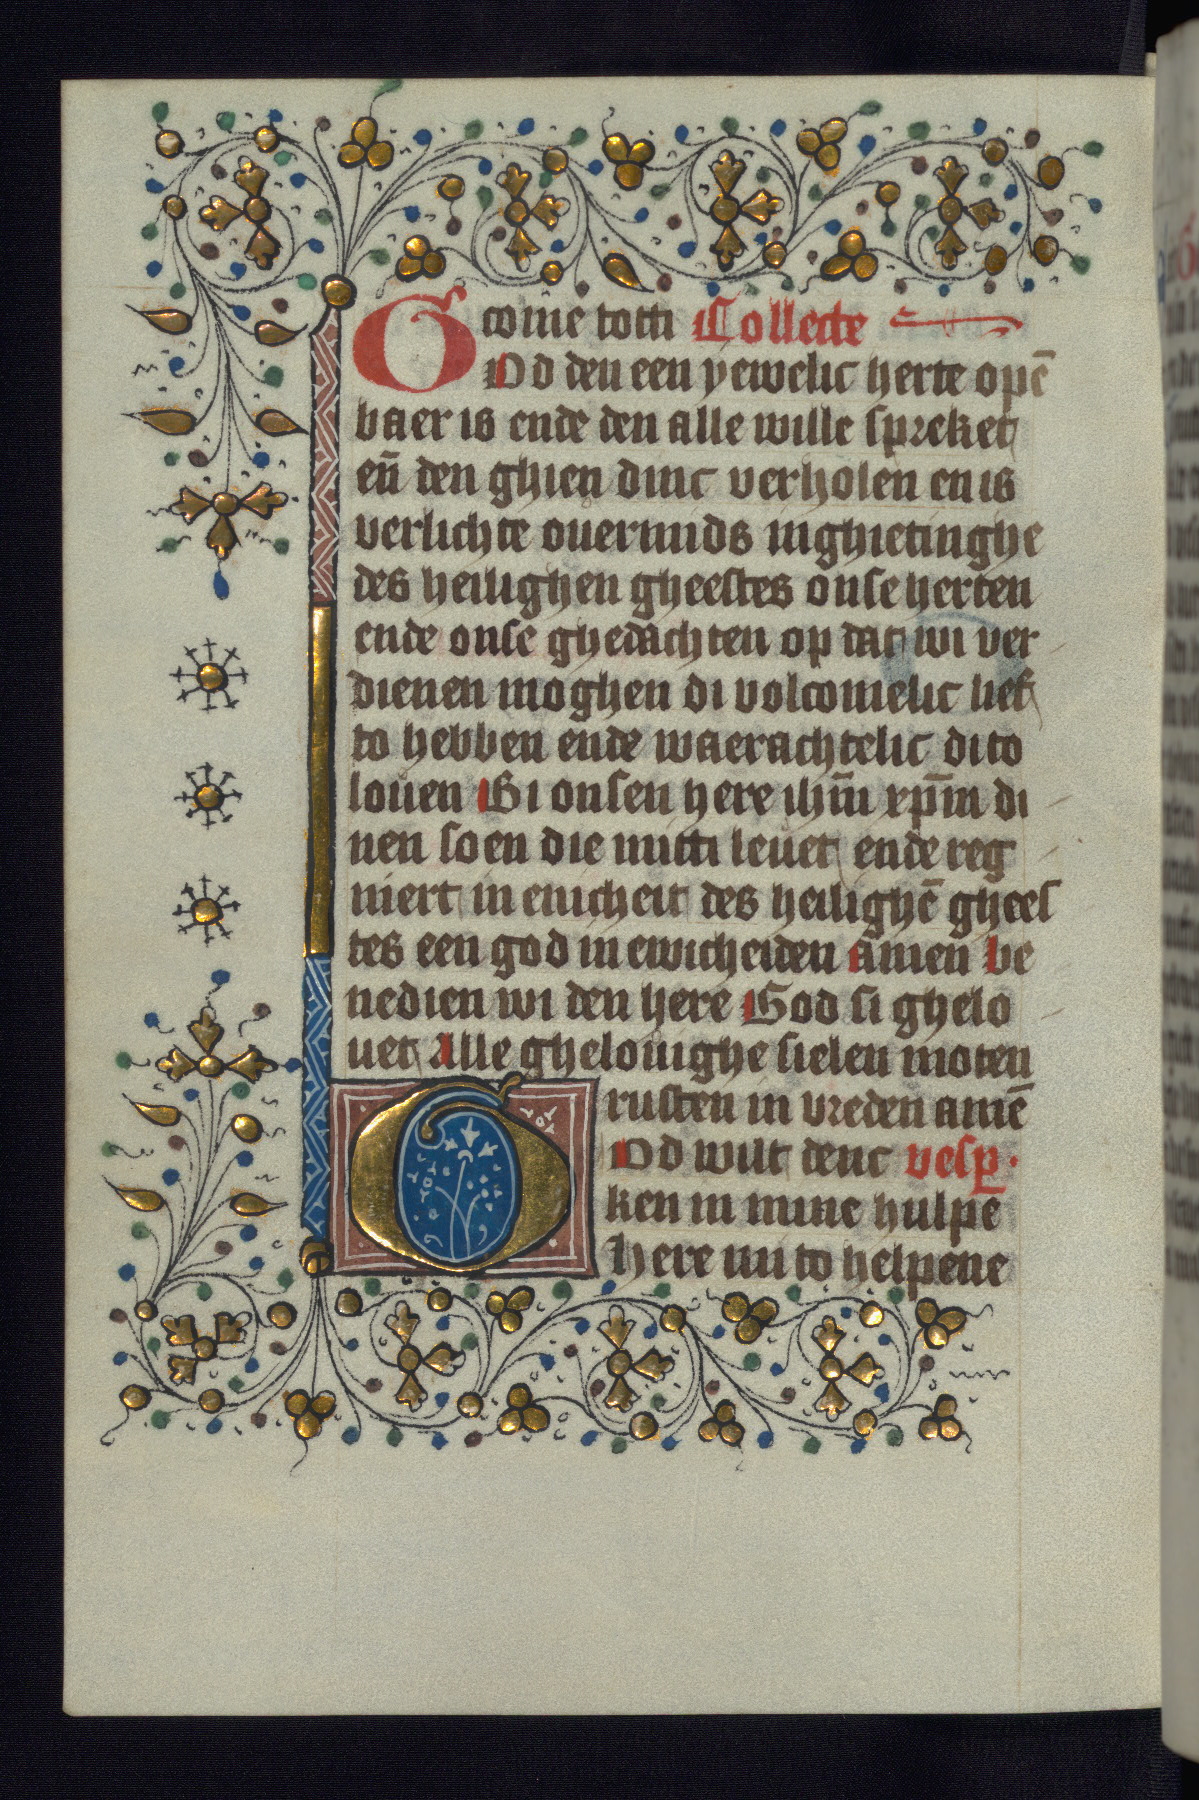 come totti Collecte
God den een yewelic herte opē
baer is ende den alle wille spreket
en̄ den ghien dinc verholen en is
verlichte ouermids inghietinghe
des heilighen gheestes onse herten
ende onse ghedachten op dat wi ver
dienen moghen di volcomelic lief
to hebben ende waerachtelic di to
louen Bi onsen here ihm̄ xpm̄ di
nen soen die mitti leuet ende reg
niert in enicheit des heilighē ghees
tes een god in ewicheiden amen be
nedien wi den here God si ghelo
uet Alle ghelouighe sielen moten
rusten in vreden amē
God wilt denc vesp.
ken in mine hulpe
here mi to helpene